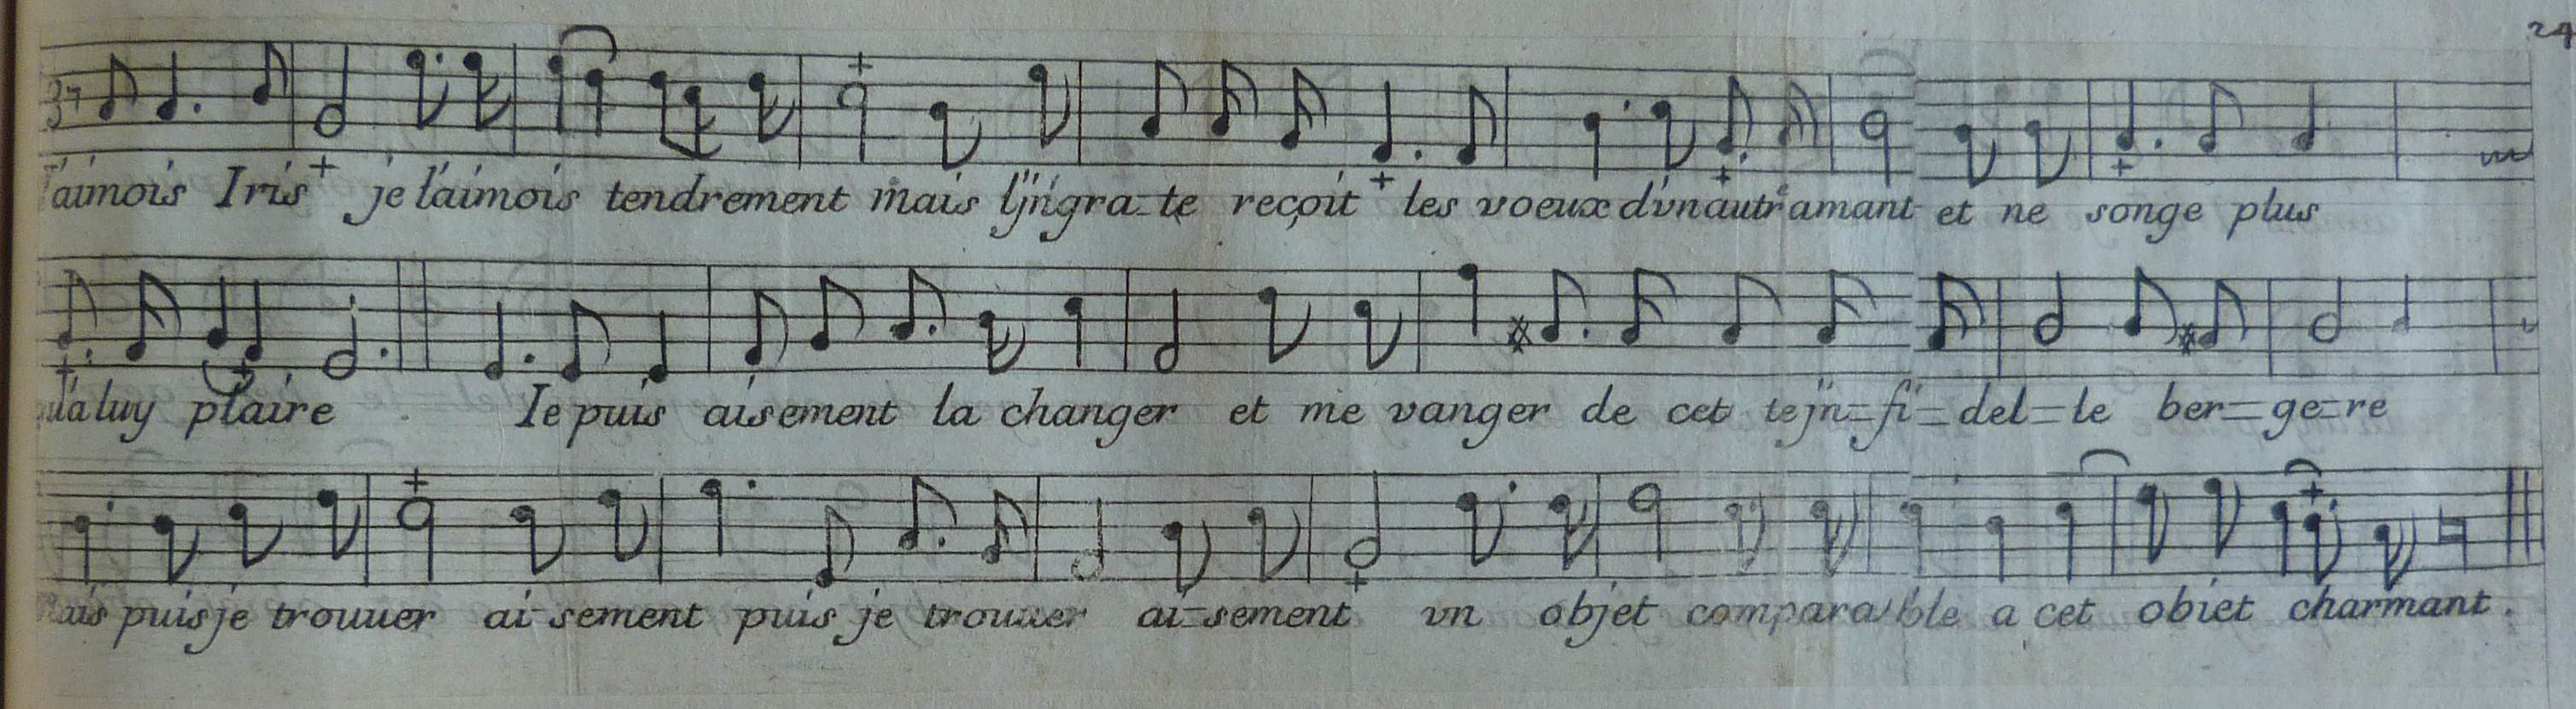 24
3
l'aimois Iris je l'aimois tendrement mais l'jngra-te reçoit les voeux d'vn autre amant et ne songe plus
qu'a luy plaire . Ie puis aisement la changer et me vanger de cet te jn=fi=del=le ber=ge=re
ais puis je trouuer ai-sement puis je trouuer ai=sement vn objet comparable a cet obiet charmant .